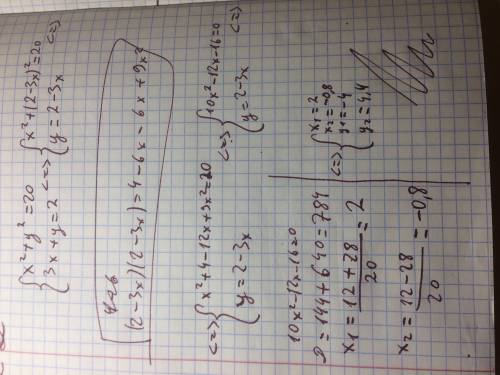 {x²+y²=20 {x²+(2-3x)²=20
{3x+y=2 <=> {y=2-3x <=>
(2-3x)(2-3x)=4-6x-6x+9x²
<=> {x²+4-12x+9x²=20 <=> {10x²-12x-16=0
{y=2-3x {y=2-3x <=>
10x²-12x-16=0
D=144+640=784
x₁=(12+28)/20=2
x₂=(12-28)/20=-0,8
<=> {x₁=2
x₂=-0,8
y₁=-4
y₂=4,4